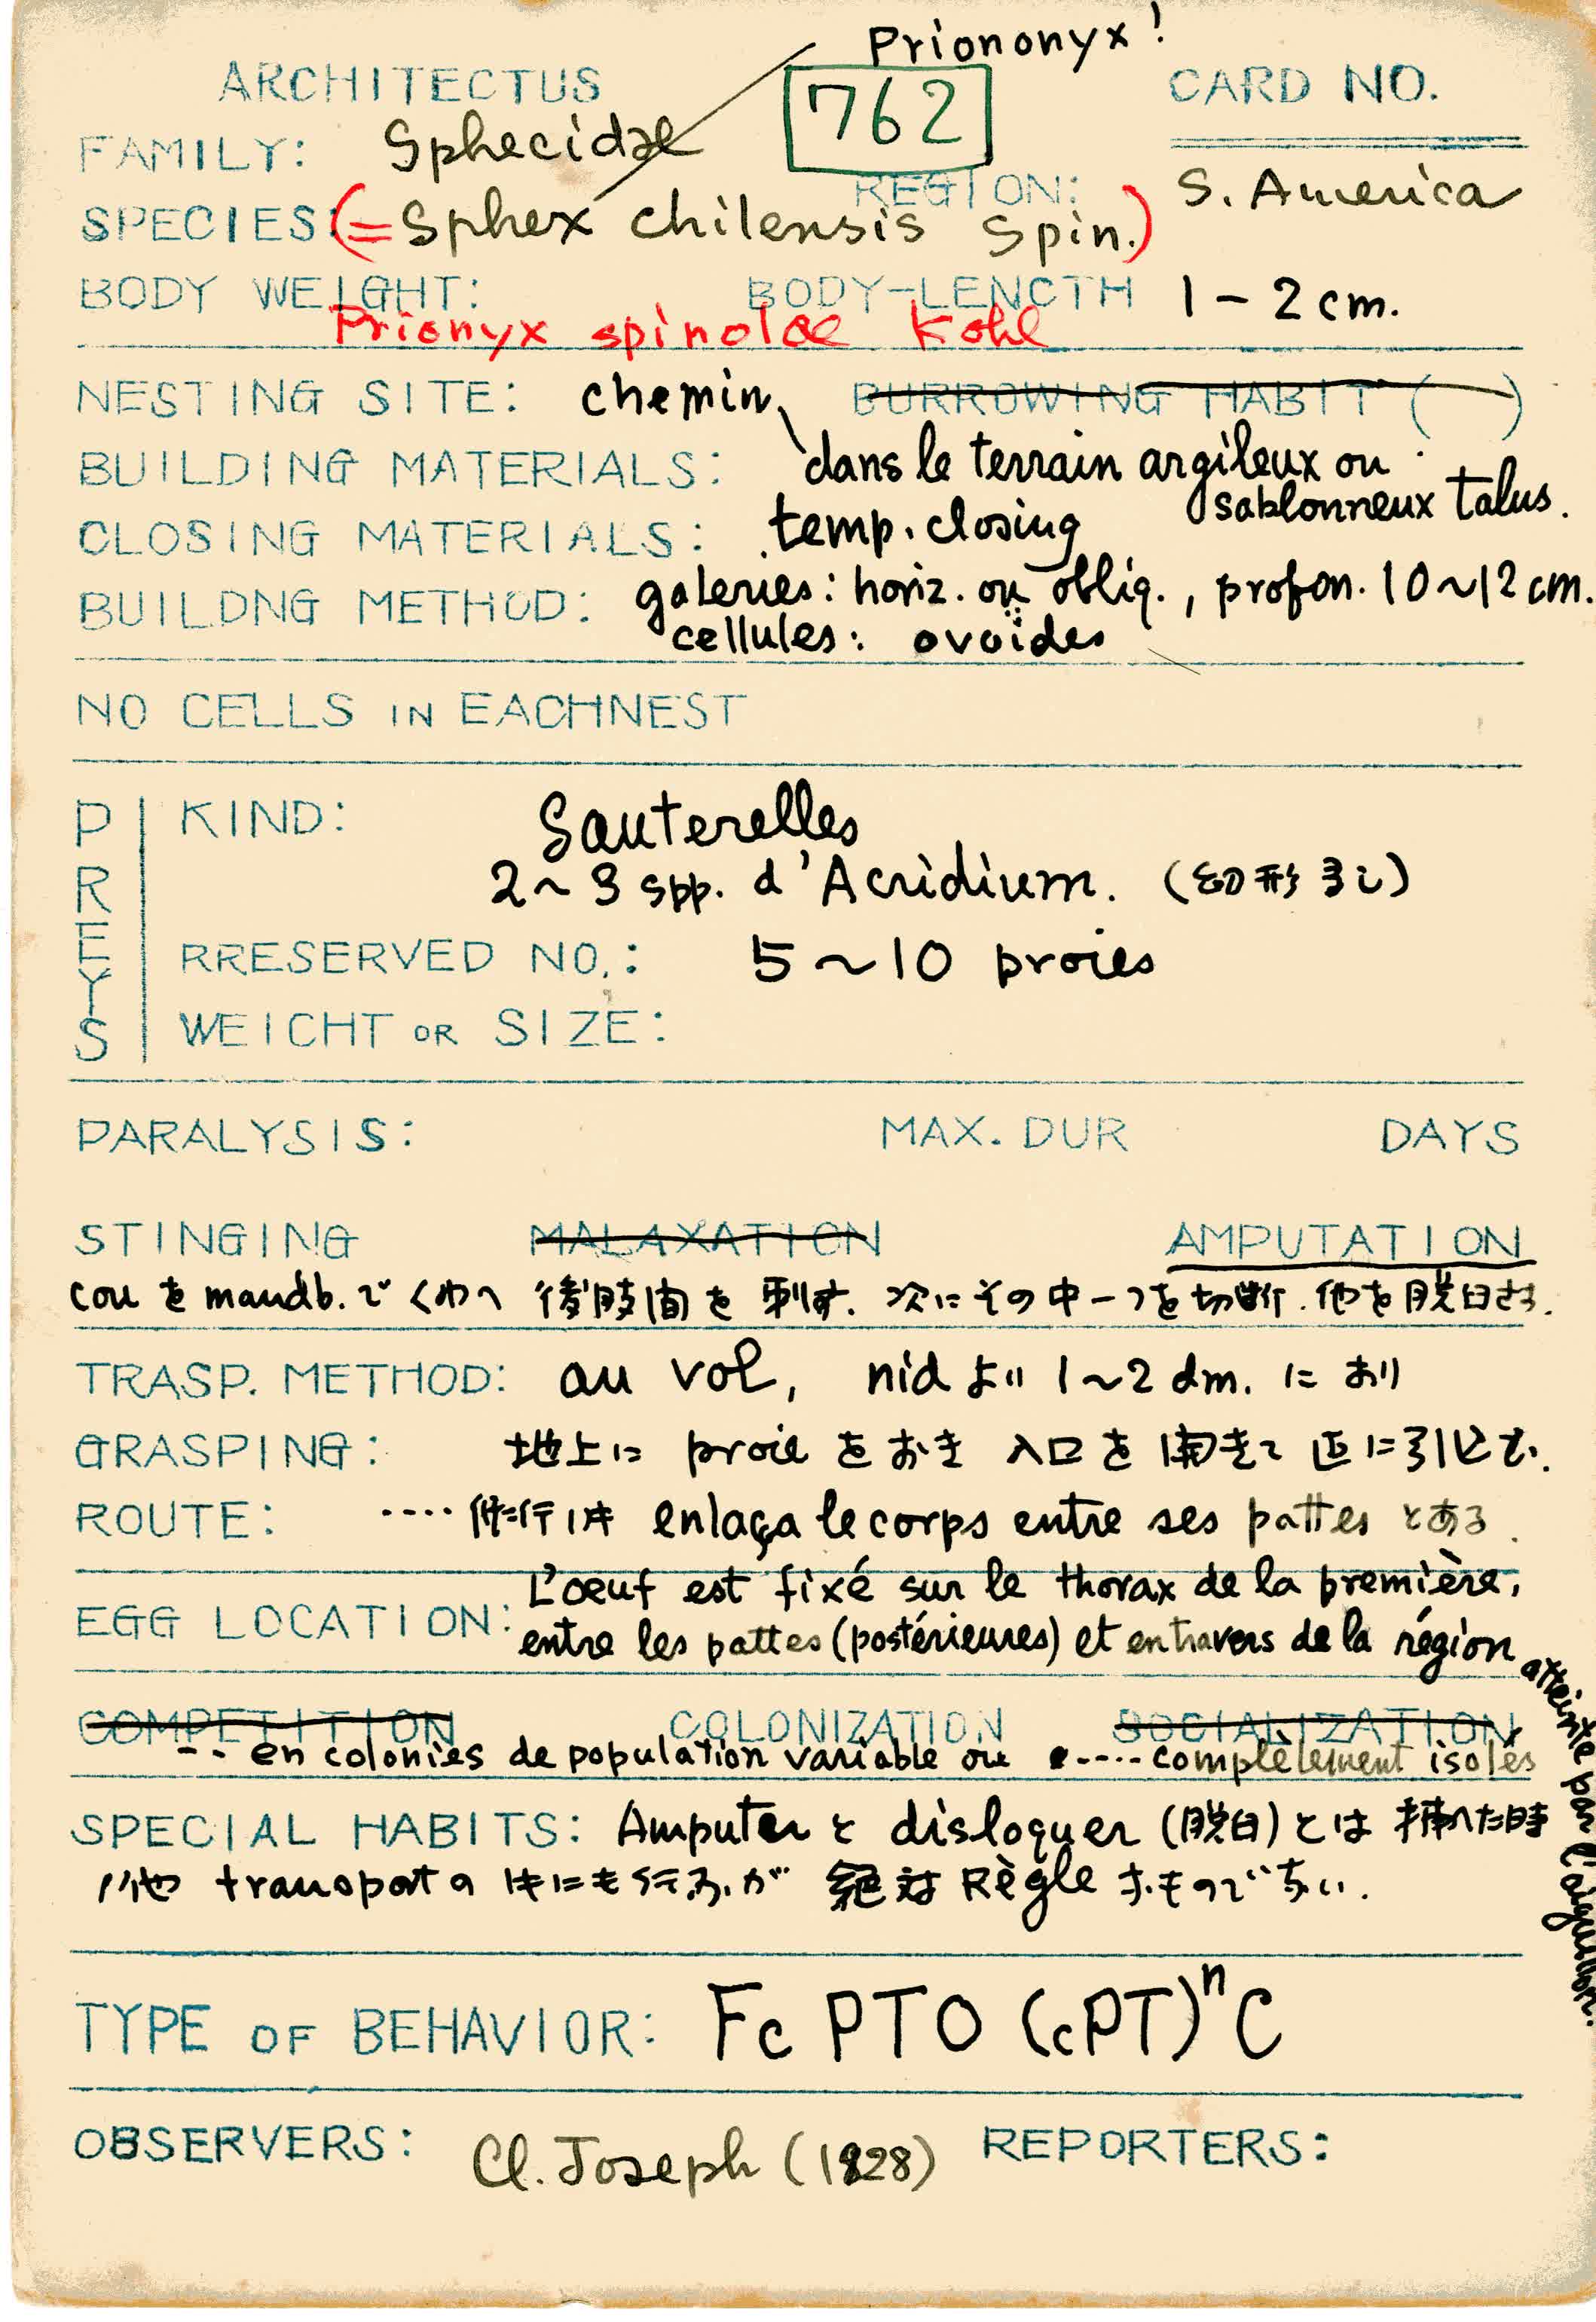 Priononyx!
ARCHITECTUS 762 CARD NO.
FAMILY: Sphecidæ
REGION: S. America
SPECIES: (=Sphex chilensis Spin.)
BODY WEIGHT: BODY-LENGTH 1-2 cm.
Prionyx spinolæ Kohl
NESTING SITE: chemin, BURROWING HABIT ( )
dans le terrain argileux ou
BUILDING MATERIALS:
sablonneux talus.
CLOSING MATERIALS: temp. closing
BUILDNG METHOD: galeries: horiz. ou obliq., profon. 10~12 cm.
cellules: ovoïdes
NO CELLS IN EACHNEST
PREYS
KIND: Sauterelles
2~3 spp. d'Acridium.
RRESERVED NO.: 5~10 proies
WEICHT OR SIZE:
PARALYSIS: MAX. DUR DAYS
STINGING MALAXATION AMPUTATION
cou を mandb. でくわへ 後肢間を刺す. 次にその中一つを切断. 他を脱臼さす.
TRASP. METHOD: au vol, nid より 1~2 dm. におり
GRASPING: 地上に proie をおき 入口を開きて直に引込む.
ROUTE: ···· enlaça le corps entre ses pattes とある.
L'œuf est fixé sur le thorax de la première,
EGG LOCATION: entre les pattes (postérieures) et en travers de la région
atteinte par l'aiguillon.
COMPETITION COLONIZATION SOCIALIZATION
-- en colonies de population variable ou ---- complètement isolés
SPECIAL HABITS: Amputer と disloquer (脱臼) とは捕へた時
ノ他 transport の时にも行ふが 絶対 Règle なものでない.
TYPE OF BEHAVIOR: Fc PTO (cPT)ⁿC
OBSERVERS: Cl. Joseph (1928) REPORTERS: